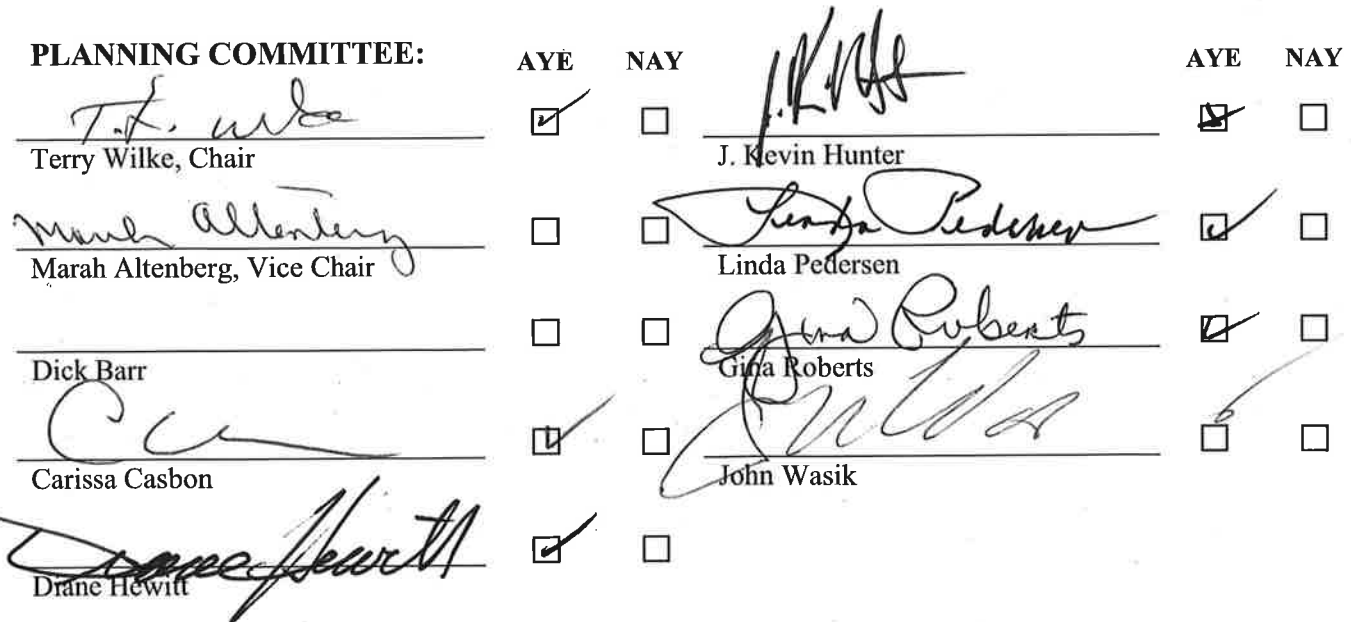 PLANNING COMMITTEE:
AYE NAY
T.L. Wilke
Terry Wilke, Chair
Marah Altenberg
Marah Altenberg, Vice Chair
Dick Barr
Carissa Casbon
Diane Hewitt
Diane Hewitt
AYE NAY
J. Kevin Hunter
Linda Pedersen
Linda Pedersen
Gina Roberts
Gina Roberts
John Wasik